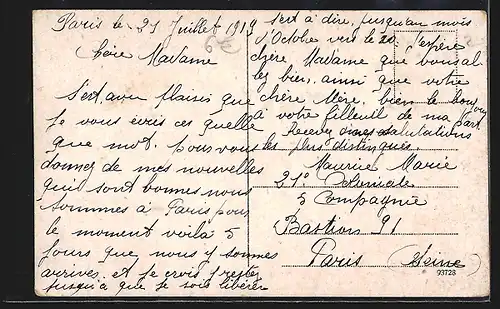 Paris le 21 Juillet 1919
Chère Madame
S'est avec plaisir que
je vous écris ces quelle
que mot. Pour vous
donner de mes nouvelles
qui sont bonnes nous
sommes à Paris pour
le moment voilà 5
jours que nous y sommes
arrivés et je crois y rester
jusqu'a que je sois libérer
s'est à dire, jusqu'au mois
d'Octobre vers le 20. J'espère
chère Madame que vous al-
lez bien, ainsi que votre
chère Mère, bien le bonjour
à votre filleul de ma part
Recevez mes salutations
les plus distingués.
Maurice Marie
21e Coloniale
5 Compagnie
Bastion 91
Paris (Seine)
93728